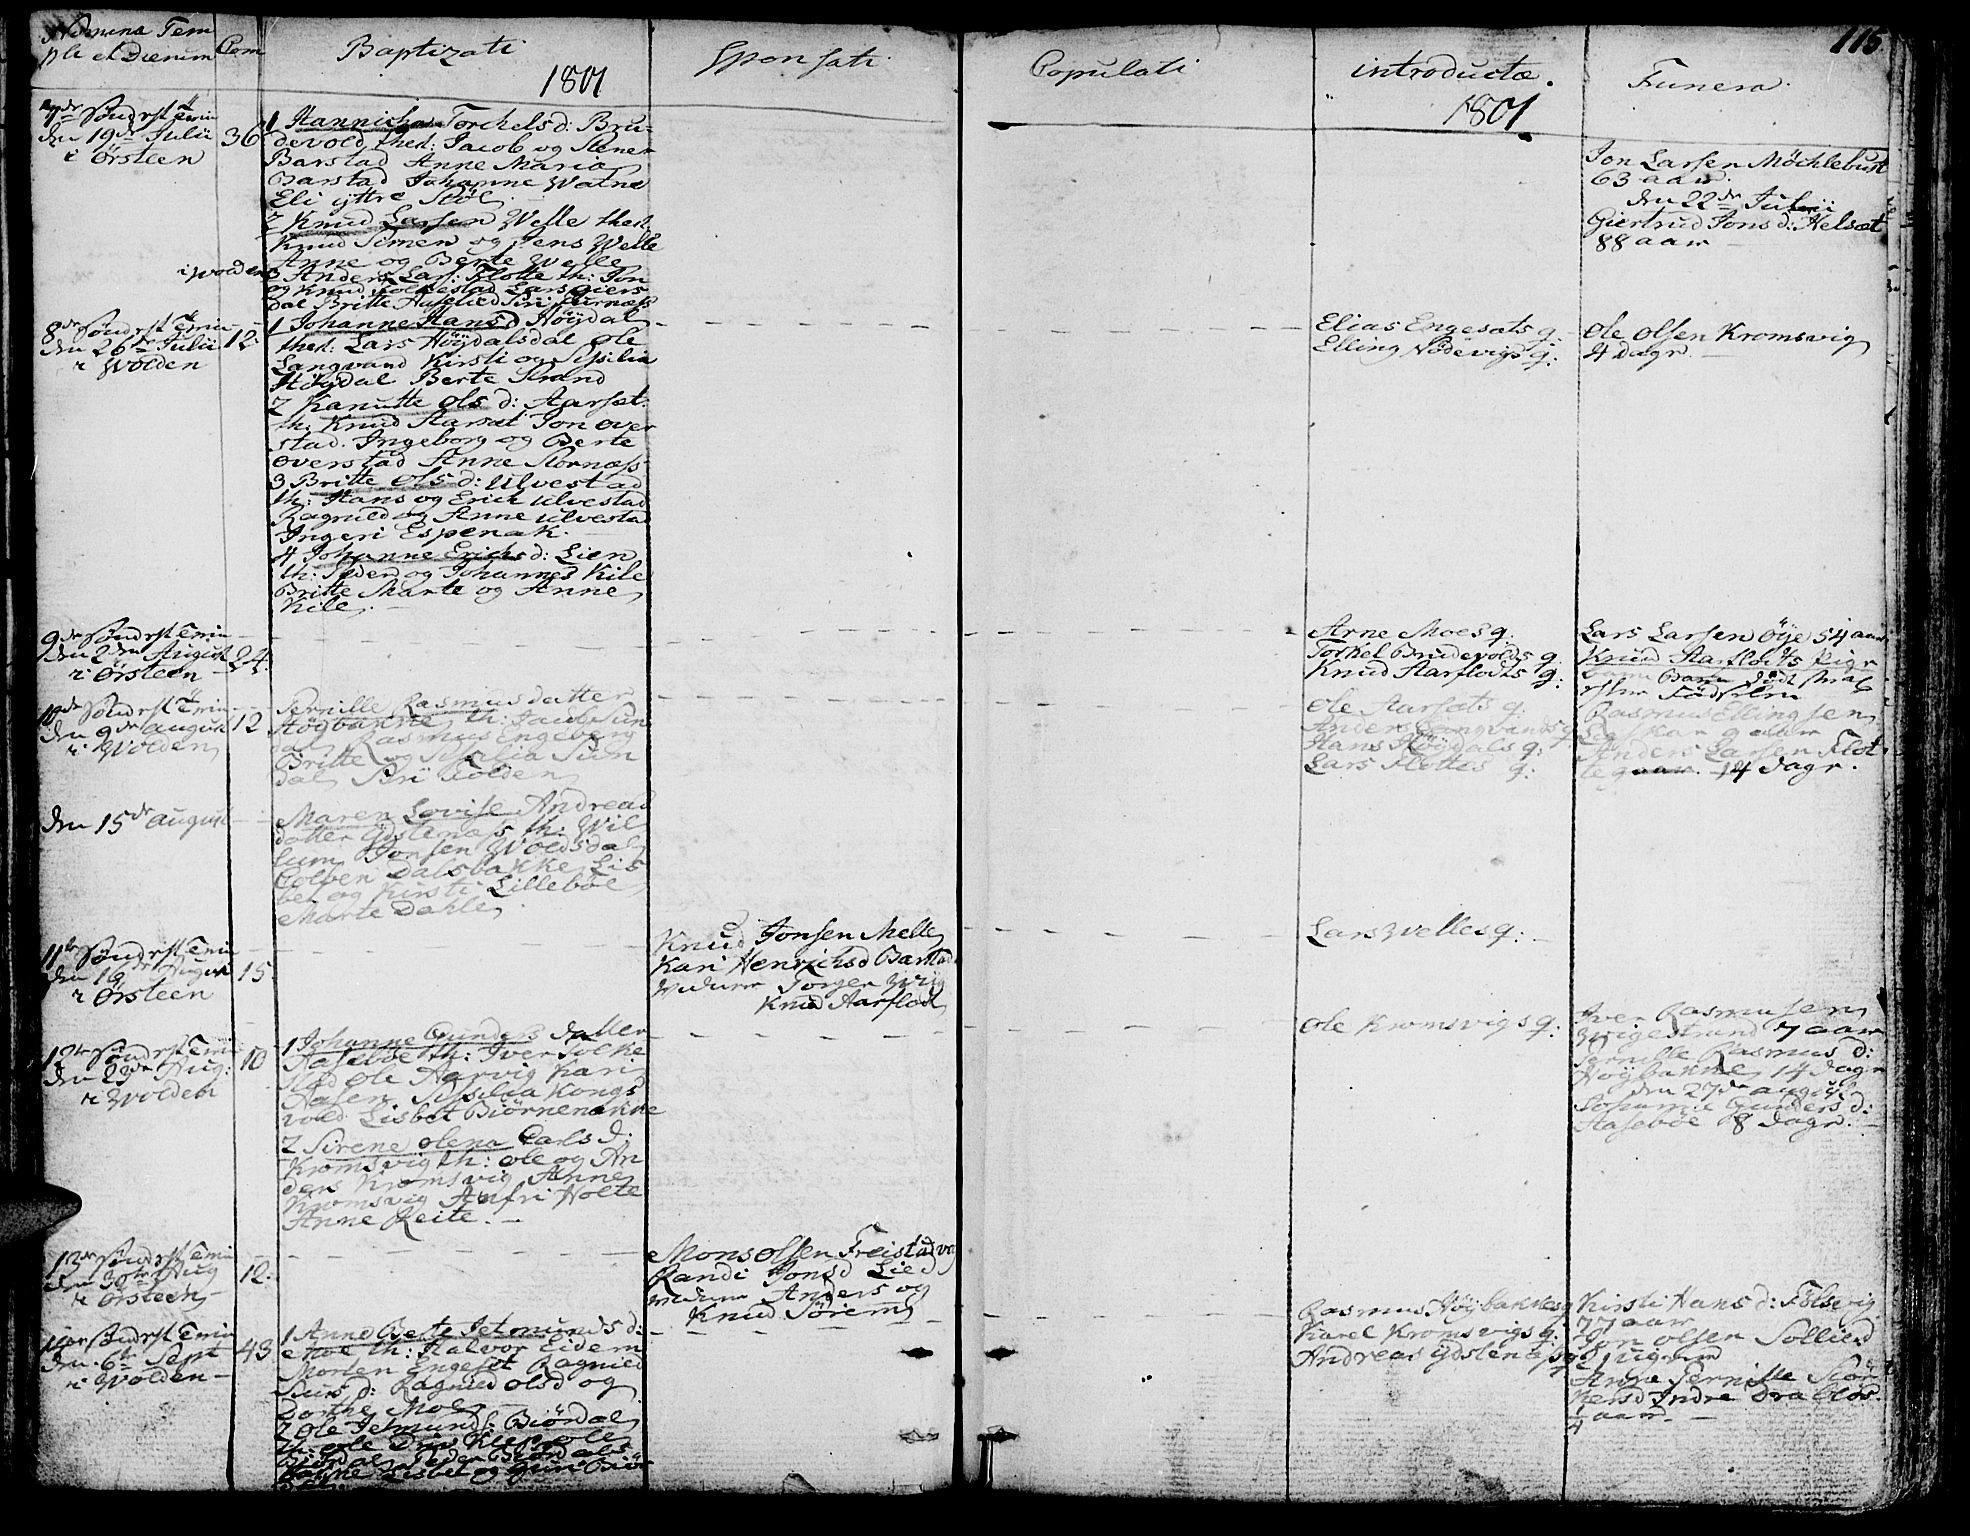 Nomina Tem
pli et Dierum
Com
Baptizati
1801
Sponsati
Copulati
introductæ
1801
Funera
115
7de Sønd: p: Trin
den 19de Julii
i Ørsteen
36
1 Hannicha Torckels d: Bru-
devold, thed: Jacob og Stener
Barstad Anne Maria
Barstad Johanne Watne
Eli yttre
2 Knud Larsen Welle thed:
Knud Simen og Jens Welle
Anne og Berte Welle
i Wolden
3 Anders Lars: Flotte th: Jon
og Knud Folkestad Lars
dal Britte
Jon Larsen Möchlebust
63 aar.
den 22de Julii
Giertrud Jons d: Helsæt
88 aar
8de Sønd: p: Trin
den 26de Julii
i Wolden
12
1 Johanne Hans d Höÿdal
thed: Lars Höÿdalsdal ole
Langvand Kirsti og Sissilia
Höÿdal Berte Strand
2 Kanutte ols d: Aarsæt
th: Knud Aarsæt Jon over
stad. Ingeborg og Berte
overstad Anne
3 Britte ols d: Ulvestad
th: Hans og Erich Ulvestad
Ragnild og Anne Ulvestad
Ingeri Espenak.
4 Johanne Erichs d: Lien
th: Peder og Johannes Kile
Britte Marte og Anne
Kile.
Elias Engesæts q:
Elling Nödevigs q:
ole olsen Kromsvig
4 Dagr.
9de Sønd: p: Trin
den 2den August
i Ørsteen
24
Arne Moes q:
Torkel Brudevolds q:
Knud Aarflodts q:
Lars Larsen Öÿe 54 aar
Knud Aarflodts
Barn Död strax
efter Födselen
10de Sønd: p: Trin
den 9de august
i Wolden
12
Pernille Rasmusdatter
Högbakke, th: Jacob Sun
dal, Rasmus Engeberg
Britte og Sissilia Sun
dal Siri Folden
ole Aarsæts q:
Anders Langvands q:
Hans Höÿdals q:
Lars Flottes q:
Rasmus Ellingsen
9 aar
Anders Larsen Flot
te 14 Dagr.
den 15de august
Maren Lovise Andreas
datter Ydstenæss th: Wil
lum Jonsen Woldsdal
Colben Dalsbakke Lis
bet og Kirsti Lillebøe
Marte Dahle
11te Sønd: p: Trin
den 16de August
i Ørsteen
15
Knud Jonsen Melle
Kari Henrichsd Barstad
Widner Jorgen Wiig
Knud Aarflod
Lars Welles q:
12te Sønd: p: Trin
den 23de Aug:
i Wolden
10
1 Johanne Gunders datter
Aasebøe th: Iver Folke
stad ole Aarvig Kari
Aasen Sissilia Kongs
vold Lisbet Biørnenakke
2 Sirene olena Carls d:
Kromsvig th: ole og An
ders Kromsvig Anne
Kromsvig Anfri Holte
Anne Reite.
ole Kromsvigs q:
Iver Rasmusen
Wigestrand 7 aar
Pernille Rasmus d:
Höÿbakke 14 Dagr
den 27de august
Johanne Gunders d:
Aasebøe 8 Dagr.
13de Sønd: p: Trin
den 30te Aug
i Ørsteen
12.
Mons olsen Freistad og
Randi Jonsd Lied
Widner Anders og
Knud Sørem
14de Sønd: p: Trin
den 6te Sept
i Wolden
43
1 Anne Berte Jetmunds d:
Moe th: Halvor Eidem
Morten Engeset Ragnied
d: Ragnied olsd og
Dorthe Moe
2 Ole Jetmunds: Biördal
th: ole Klep ole
Biördal Peder Biördals
Lisbet og Guri Biör
dal.
Rasmus Höÿbakkes q
Karel Kromsvigs q:
Andreas Ydstenæs q:
Kirsti Hans d: Fölsvig
77 aar
Jon olsen Sollied
2 uger
Anne Pernille
Indre Drabløs
1/4 aar.